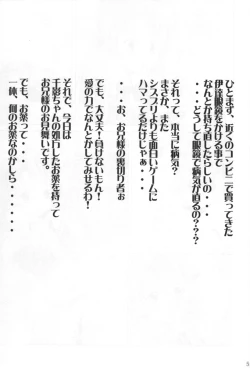 ひとまず、近くのコンビニで買ってきた
伊達眼鏡をかける事で
なんとか持ち直したらしいの
・・・どうして眼鏡で病気が直るの???
それって、本当に病気?
まさか、また
シスプリよりも面白いゲームに
ハマってるだけじゃぁ・・・・
・・・お、お兄様の裏切り者ぉ
でも、大丈夫!負けないもん!
愛の力でなんとかしてみせるわ!
それで、今日は
千影ちゃんの処方したお薬を持って
お兄様のお見舞いです。
でも、お薬って・・・・
一体、何のお薬なのかしら・・・・
5